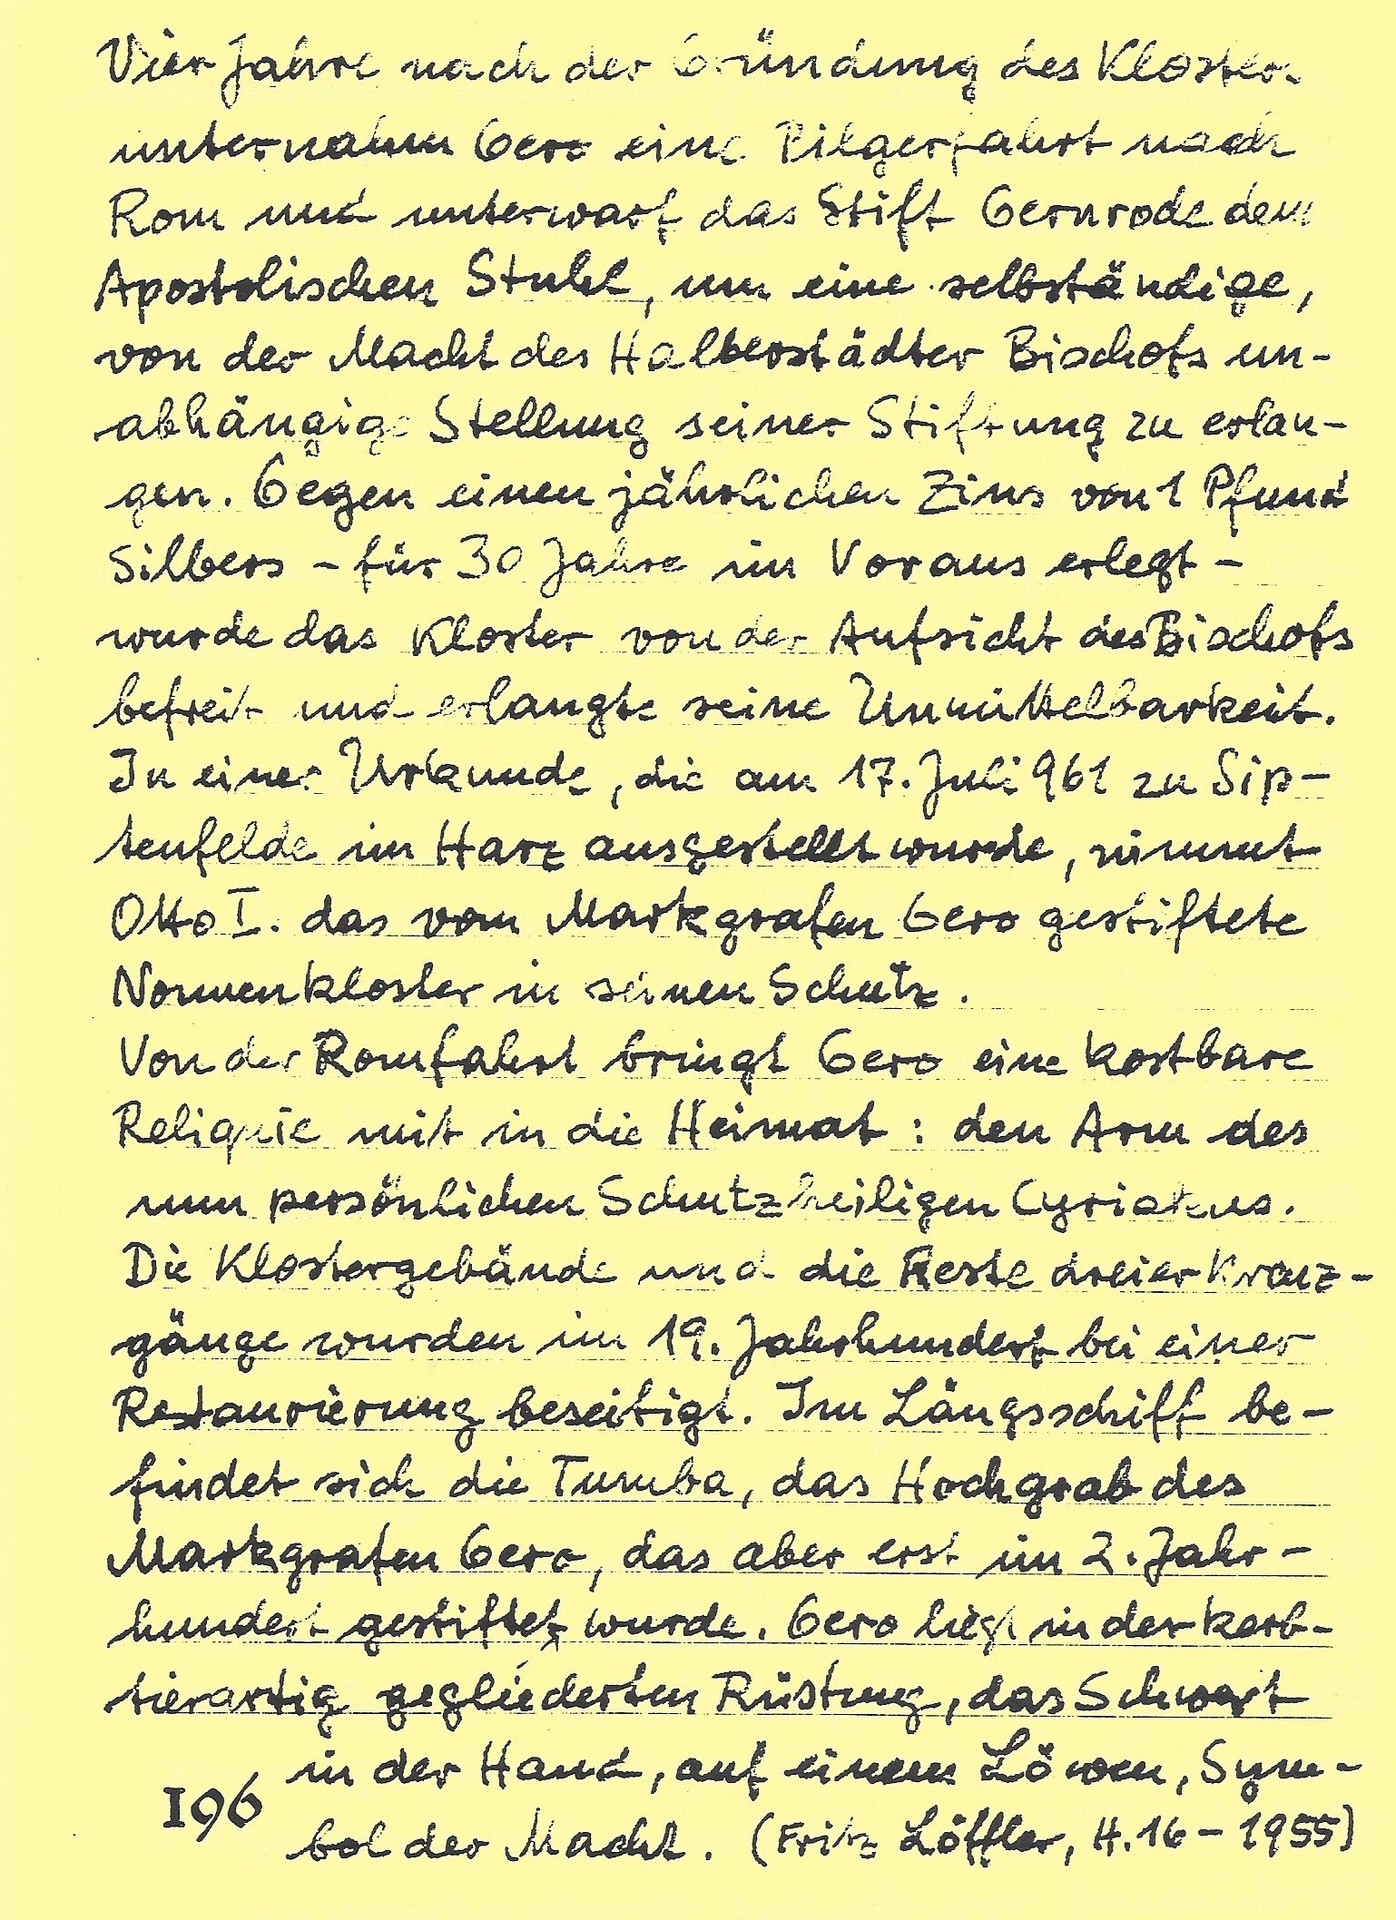 Vier Jahre nach der Gründung des Klosters
unternahm Gero eine Pilgerfahrt nach
Rom und unterwarf das Stift Gernrode dem
Apostolischen Stuhl, um eine selbständige,
von der Macht des Halberstädter Bischofs un-
abhängige Stellung seiner Stiftung zu erlan-
gen. Gegen einen jährlichen Zins von 1 Pfund
Silbers - für 30 Jahre im Voraus erlegt -
wurde das Kloster von der Aufsicht des Bischofs
befreit und erlangte seine Unmittelbarkeit.
In einer Urkunde, die am 17. Juli 961 zu Sip-
tenfelde im Harz ausgestellt wurde, nimmt
Otto I. das vom Markgrafen Gero gestiftete
Nonnenkloster in seinen Schutz.
Von der Romfahrt bringt Gero eine kostbare
Reliquie mit in die Heimat: den Arm des
nun persönlichen Schutzheiligen Cyriakus.
Die Klostergebäude und die Reste dreier Kreuz-
gänge wurden im 19. Jahrhundert bei einer
Restaurierung beseitigt. Im Längsschiff be-
findet sich die Tumba, das Hochgrab des
Markgrafen Gero, das aber erst im 2. Jahr-
hundert gestiftet wurde. Gero liegt in der kerb-
tierartig gegliederten Rüstung, das Schwert
in der Hand, auf einem Löwen, Sym-
196
bol der Macht. (Fritz Löffler, H.16 - 1955)